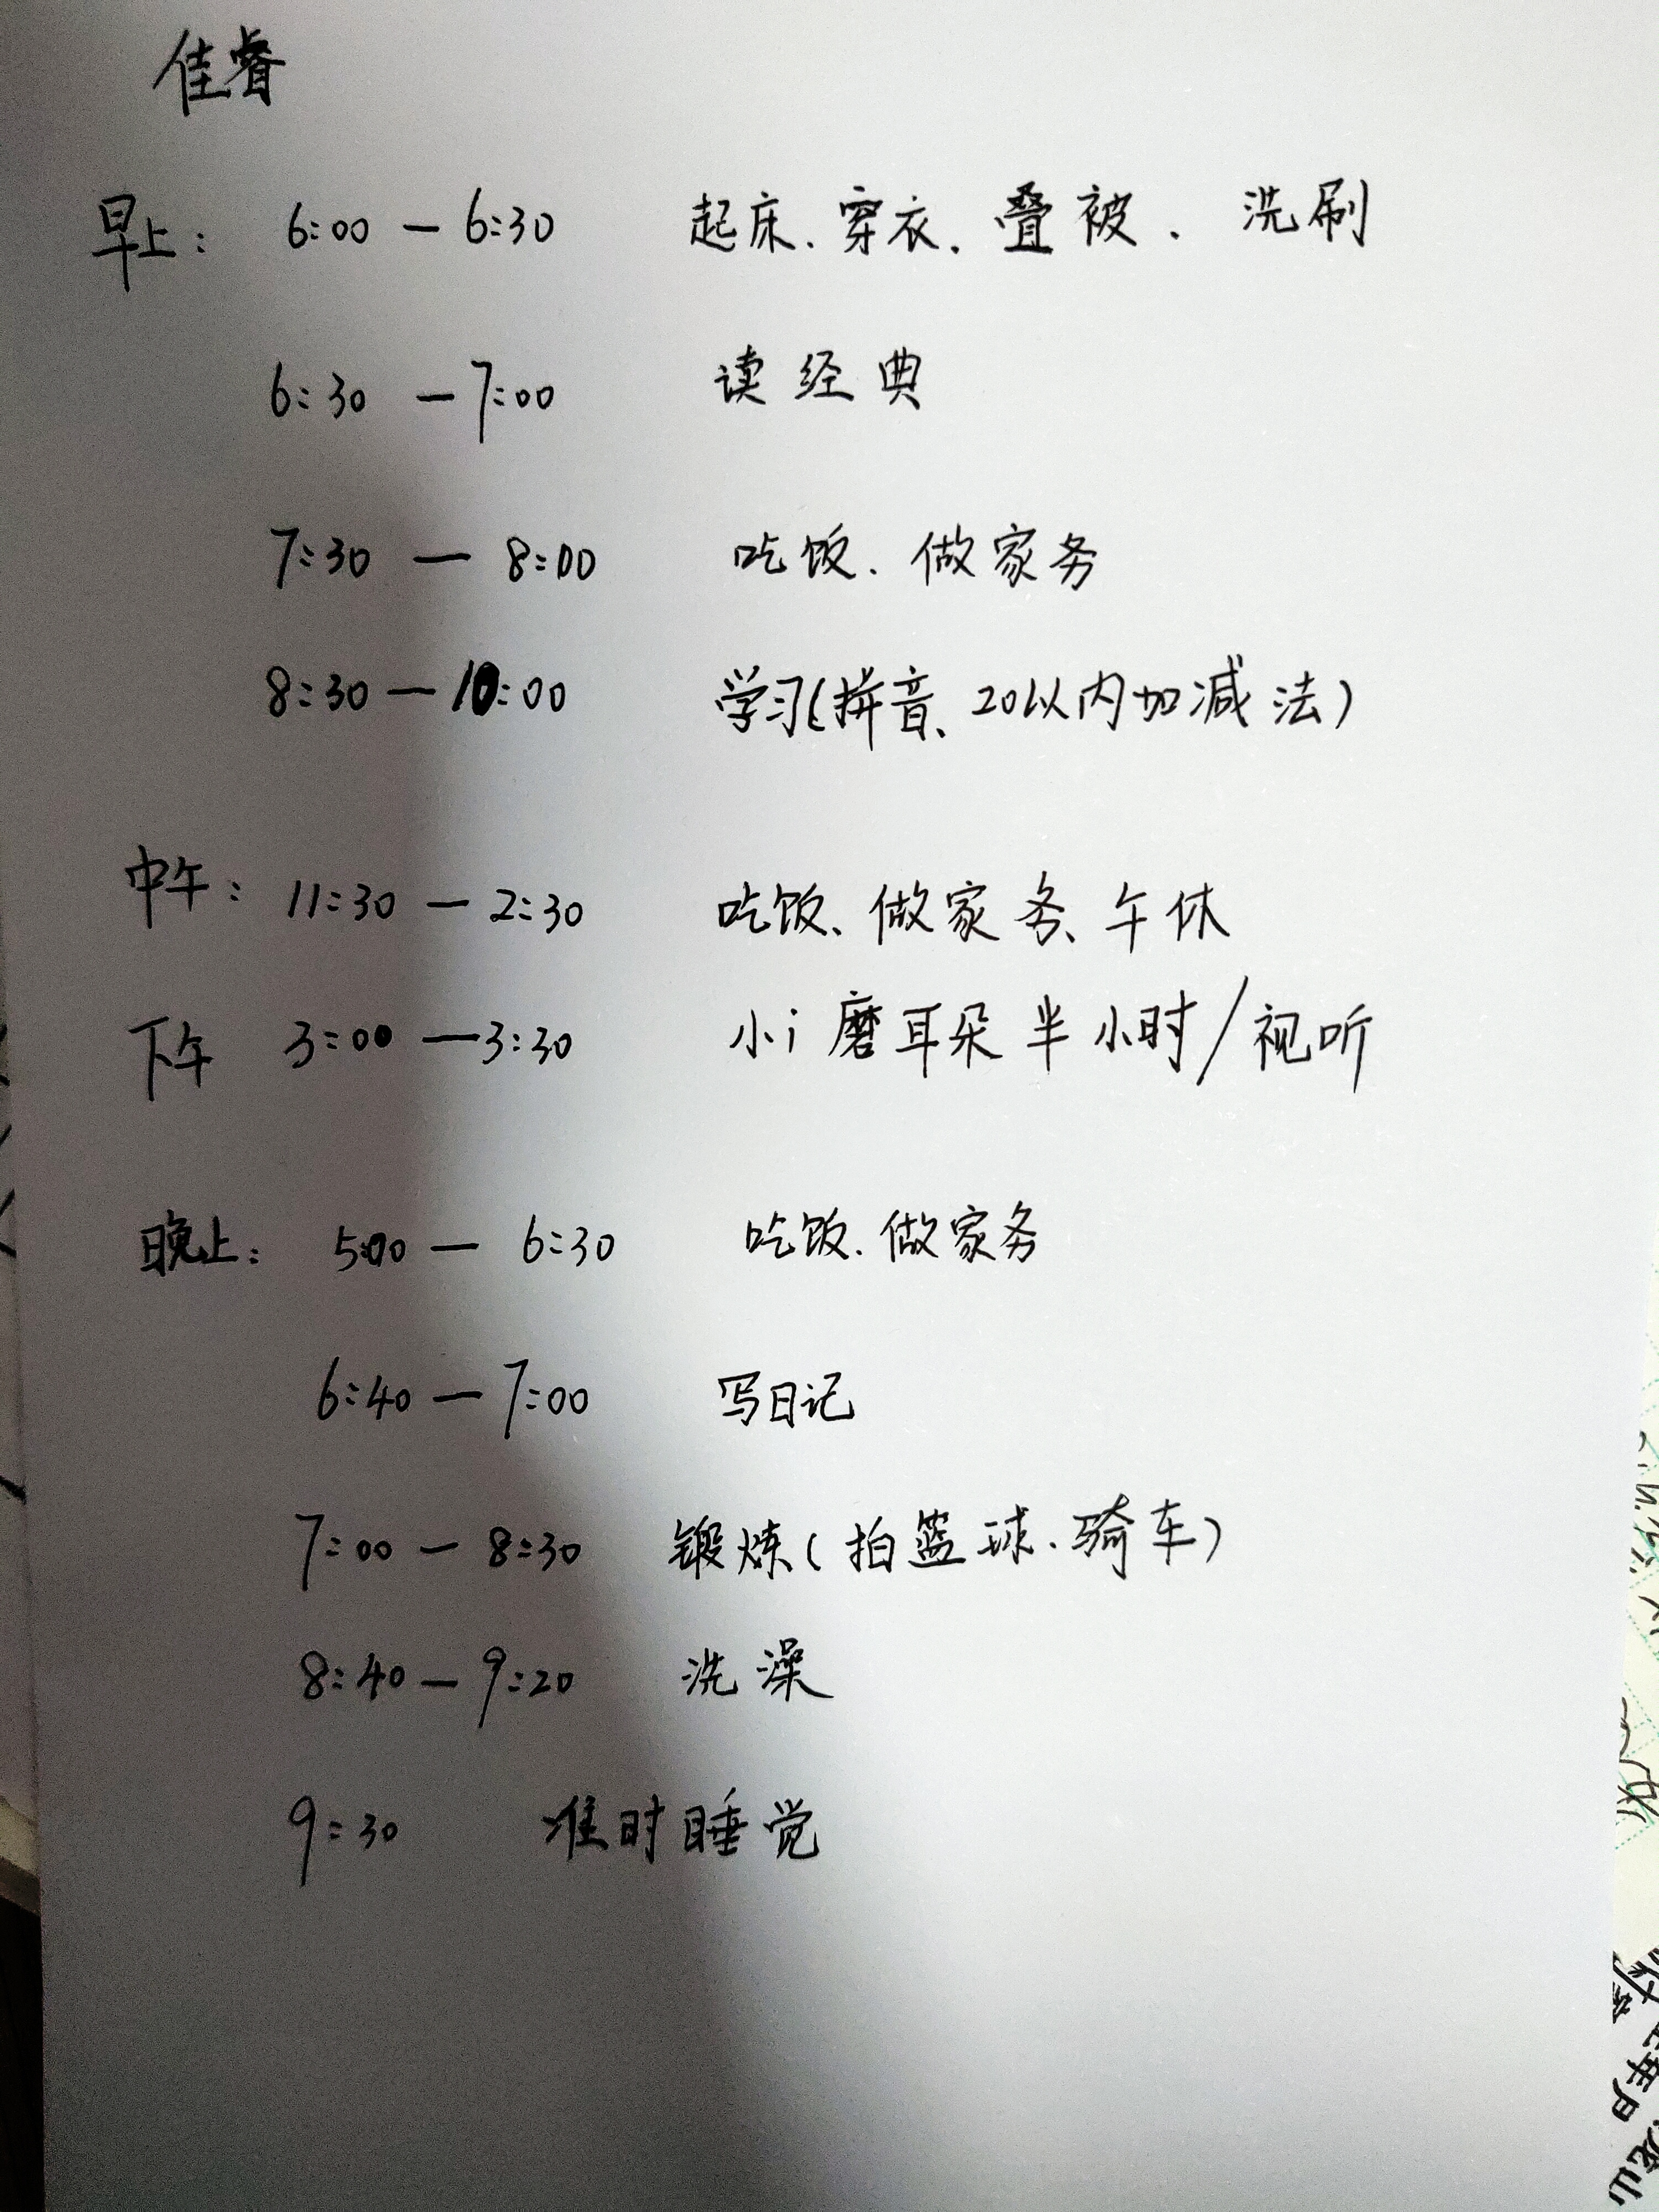 佳睿
早上: 6:00 — 6:30 起床、穿衣、叠被、洗刷
6:30 — 7:00 读经典
7:30 — 8:00 吃饭、做家务
8:30 — 10:00 学习(拼音、20以内加减法)
中午: 11:30 — 2:30 吃饭、做家务、午休
下午 3:00 — 3:30 小i磨耳朵半小时/视听
晚上: 5:00 — 6:30 吃饭、做家务
6:40 — 7:00 写日记
7:00 — 8:30 锻炼(拍篮球、骑车)
8:40 — 9:20 洗澡
9:30 准时睡觉